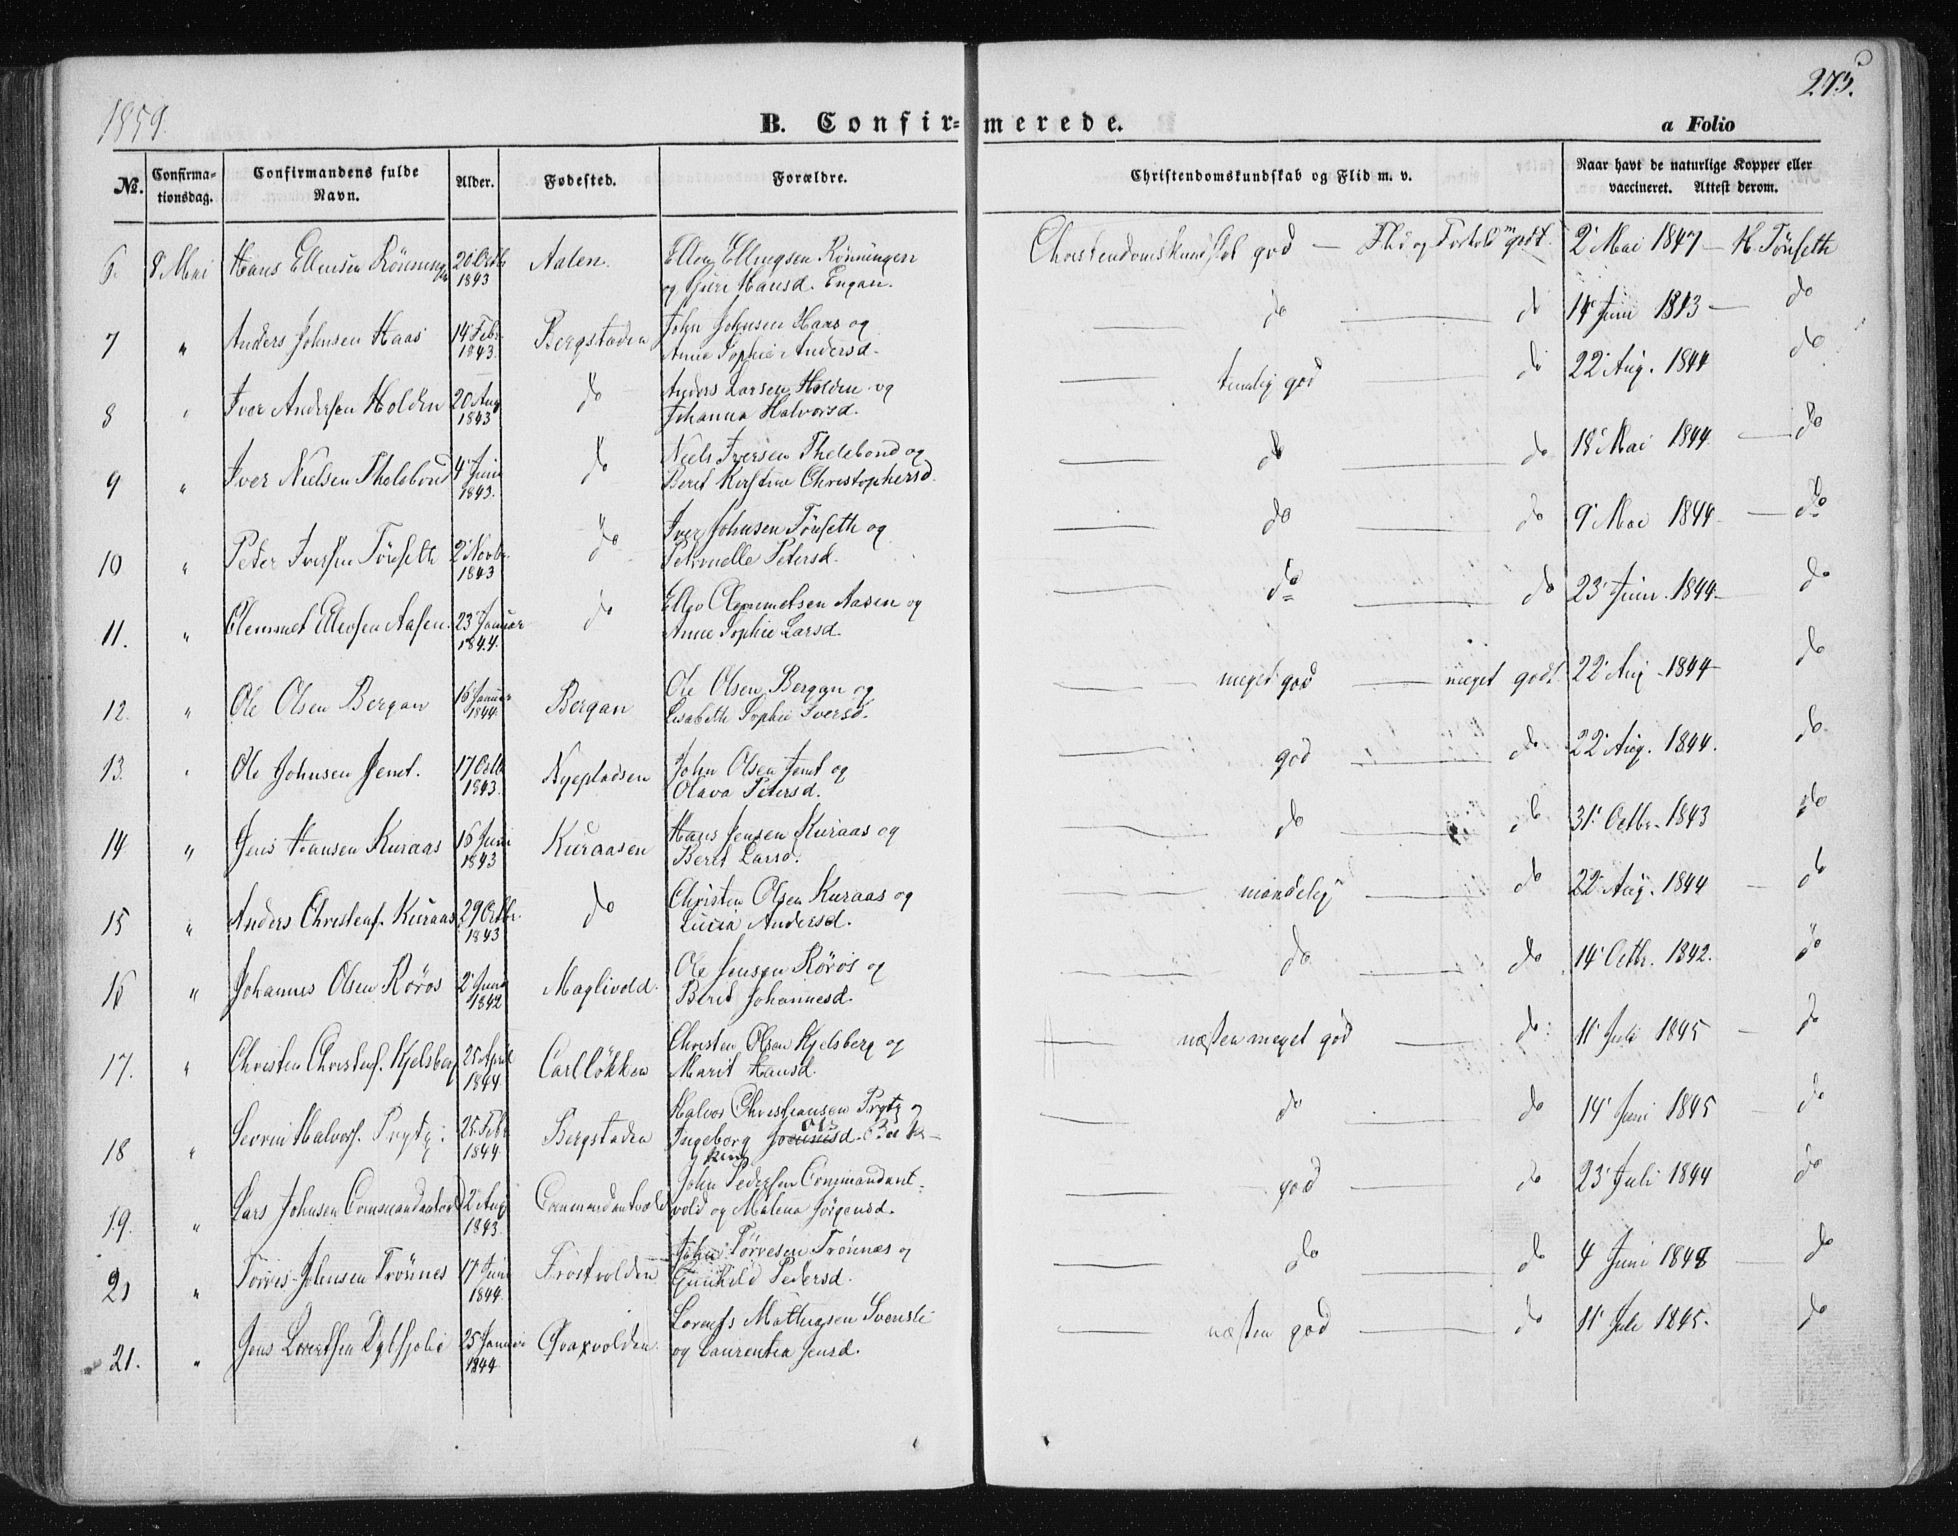 1859.
273.
B. Confir=merede.
a Folio
No.
Confirma-
tionsdag.
Confirmandens fulde
Navn.
Alder.
Fødested.
Forældre.
Christendomskundskab og Flid m. v.
Naar havt de naturlige Kopper eller
vaccineret. Attest derom.
6. 8 Mai Hans Ellensen Rönningen 20 Octb 1843 Aalen. Ellen Ellingsen Rönningen
og Guri Hansd. Engan.
Christendomskundskab god — Flid og Forhold godt. 2' Mai 1847 — H. Tönseth
7 " Anders Johnsen Haas 14 Febr. 1843. Bergstaden John Johnsen Haas og
Anne Sophie Andersd.
do do 14 Juni 1843 — do
8 " Iver Andersen Holden 20 Aug 1843 do Anders Larsen Holden og
Johanna Halvorsd.
temelig god do 22 Aug. 1844 do
9 " Iver Nielsen Thelebond 4' Juni 1843. do Niels Iversen Thelebond og
Berit Kirstine Christophersd.
do do 18' Mai 1844. — do
10 " Peter Iversen Tönseth 2' Novbr. 1843 do Iver Johnsen Tönseth og
Petronelle Petersd.
do do 9' Mai 1844 — do
11. " Clemmet Ellevsen Aasen. 23' Januar 1844. do Ellev Clemmetsen Aasen og
Anne Sophie Larsd.
do do 23' Juni. 1844 — do
12. " Ole Olsen Bergan 16 Januar 1844. Bergan Ole Olsen Bergan og
Lisabeth Sophie Iversd.
meget god — meget godt. 22' Aug. 1844 do
13. " Ole Johnsen Jemt. 17 Octb 1843. Nyepladsen John Olsen Jemt og
Olava Petersd.
god do 22' Aug. 1844. do
14 " Jens Hansen Kuraas 16 Juni 1843 Kuraasen Hans Jensen Kuraas og
Berit Larsd.
do do 31' Octbr. 1843 do
15 " Anders Christens. Kuraas 29 Octbr. 1843 do Christen Olsen Kuraas og
Lucia Andersd.
maadelig do 22' Aug. 1844 — do
16 " Johannes Olsen Röros 2' Juni 1842 Maglivold. Ole Jensen Röros og
Berit Johannesd.
do do 14' Octbr. 1842. do
17. " Christen Christens. Kjelsberg 25 April 1844 Carllökken Christen Olsen Kjelsberg og
Marit Hansd.
næsten meget god do. 11' Juli 1845 — do
18 " Sevrin Halvors. Prytz. 25 Febr 1844 Bergstaden Halvor Christiansen Prytz og
Ingeborg Olsd.
do do 14' Juni 1845 — do
19. " Lars Johnsen Commandantvold 2' Aug 1843. Commandantvold John Pedersen Commandant=
vold og Malena Jörgensd.
god do 23' Juli 1844 do
20 " Torres Johnsen Trönnes 17 Juni 1844. Frostvolden John Törresen Trönnes og
Gunhild Pedersd.
do do 4 Juni 1848 — do
21. " Jens 25 Januar 1844 Qvaxvolden
og Laurentia Jensd.
næsten god do 11' Juli 1845. do